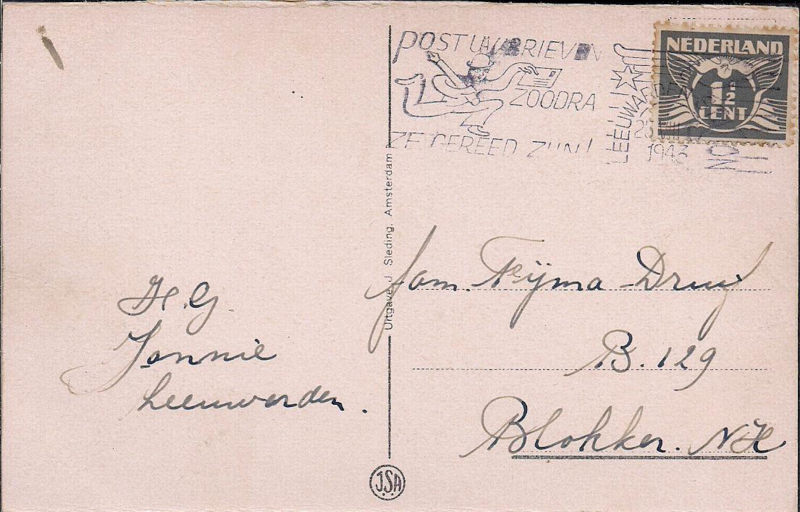 POST UW BRIEVEN
ZOODRA
ZE GEREED ZIJN!
LEEUWARDEN
1943
NEDERLAND
1½
CENT
Uitgave J. Sleding, Amsterdam
H.G.
Jannie
Leeuwarden.
Fam. Fijma-Druif
B. 129
Blokker. NH
J.S.A